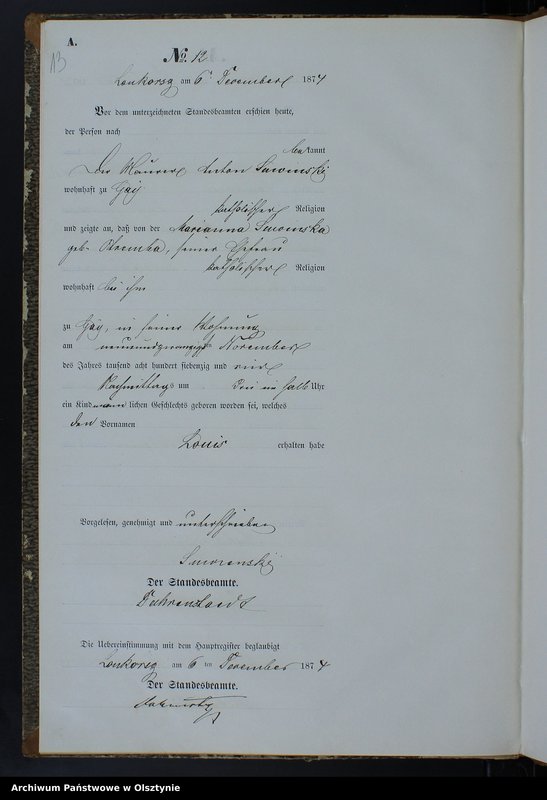 A.
13
No. 12
Lonkorsz am 6ten December 1874
Vor dem unterzeichneten Standesbeamten erschien heute,
der Person nach
bekannt
Der Maurer Anton
wohnhaft zu Gay
katholischer Religion
und zeigte an, daß von der Marianna
geb. , seiner Ehefrau
katholischer Religion
wohnhaft bei ihm
zu Gay, in seiner Wohnung
am neunundzwanzigsten November
des Jahres tausend acht hundert siebenzig und vier
Nachmittags um drei ein halb Uhr
ein Kind männlichen Geschlechts geboren worden sei, welches
den Vornamen
Louis erhalten habe
Vorgelesen, genehmigt und unterschrieben
Der Standesbeamte.
Die Uebereinstimmung mit dem Hauptregister beglaubigt
Lonkorsz am 6ten December 1874
Der Standesbeamte.
Archiwum Państwowe w Olsztynie